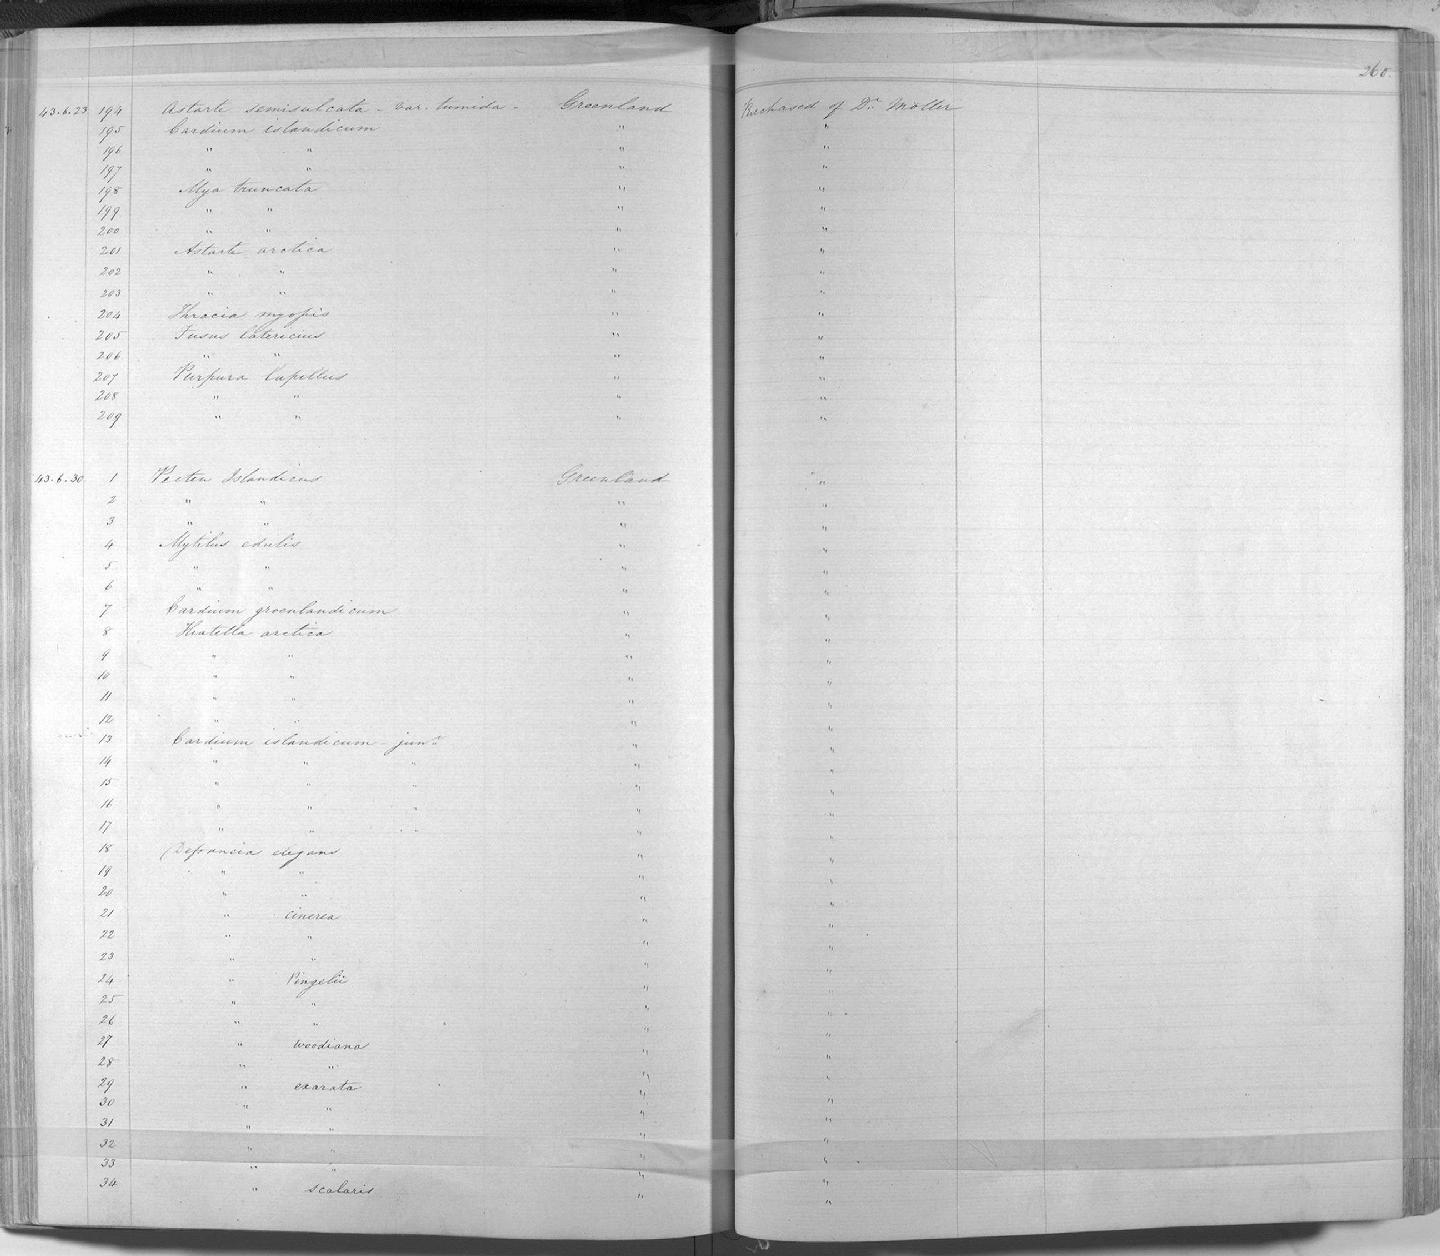 260.
43.6.23 194 Astarte semisulcata - var. tumida - Greenland Purchased of Dr. Möller
195 Cardium islandicum " "
196 " " " "
197 " " " "
198 Mya truncata " "
199 " " " "
200 " " " "
201 Astarte arctica " "
202 " " " "
203 " " " "
204 Thracia myopis " "
205 Fusus latericius " "
206 " " " "
207 Purpura lapillus " "
208 " " " "
209 " " " "
43.6.30 1 Pecten Islandicus Greenland "
2 " " " "
3 " " " "
4 Mytilus edulis " "
5 " " " "
6 " " " "
7 Cardium groenlandicum " "
8 Hiatella arctica " "
9 " " " "
10 " " " "
11 " " " "
12 " " " "
13 Cardium islandicum - junr " "
14 " " " " "
15 " " " " "
16 " " " " "
17 " " " " "
18 Defrancia elegans " "
19 " " " "
20 " " " "
21 " cinerea " "
22 " " " "
23 " " " "
24 " Pingelii " "
25 " " " "
26 " " " "
27 " woodiana " "
28 " " " "
29 " exarata " "
30 " " " "
31 " " " "
32 " " " "
33 " " " "
34 " scalaris " "